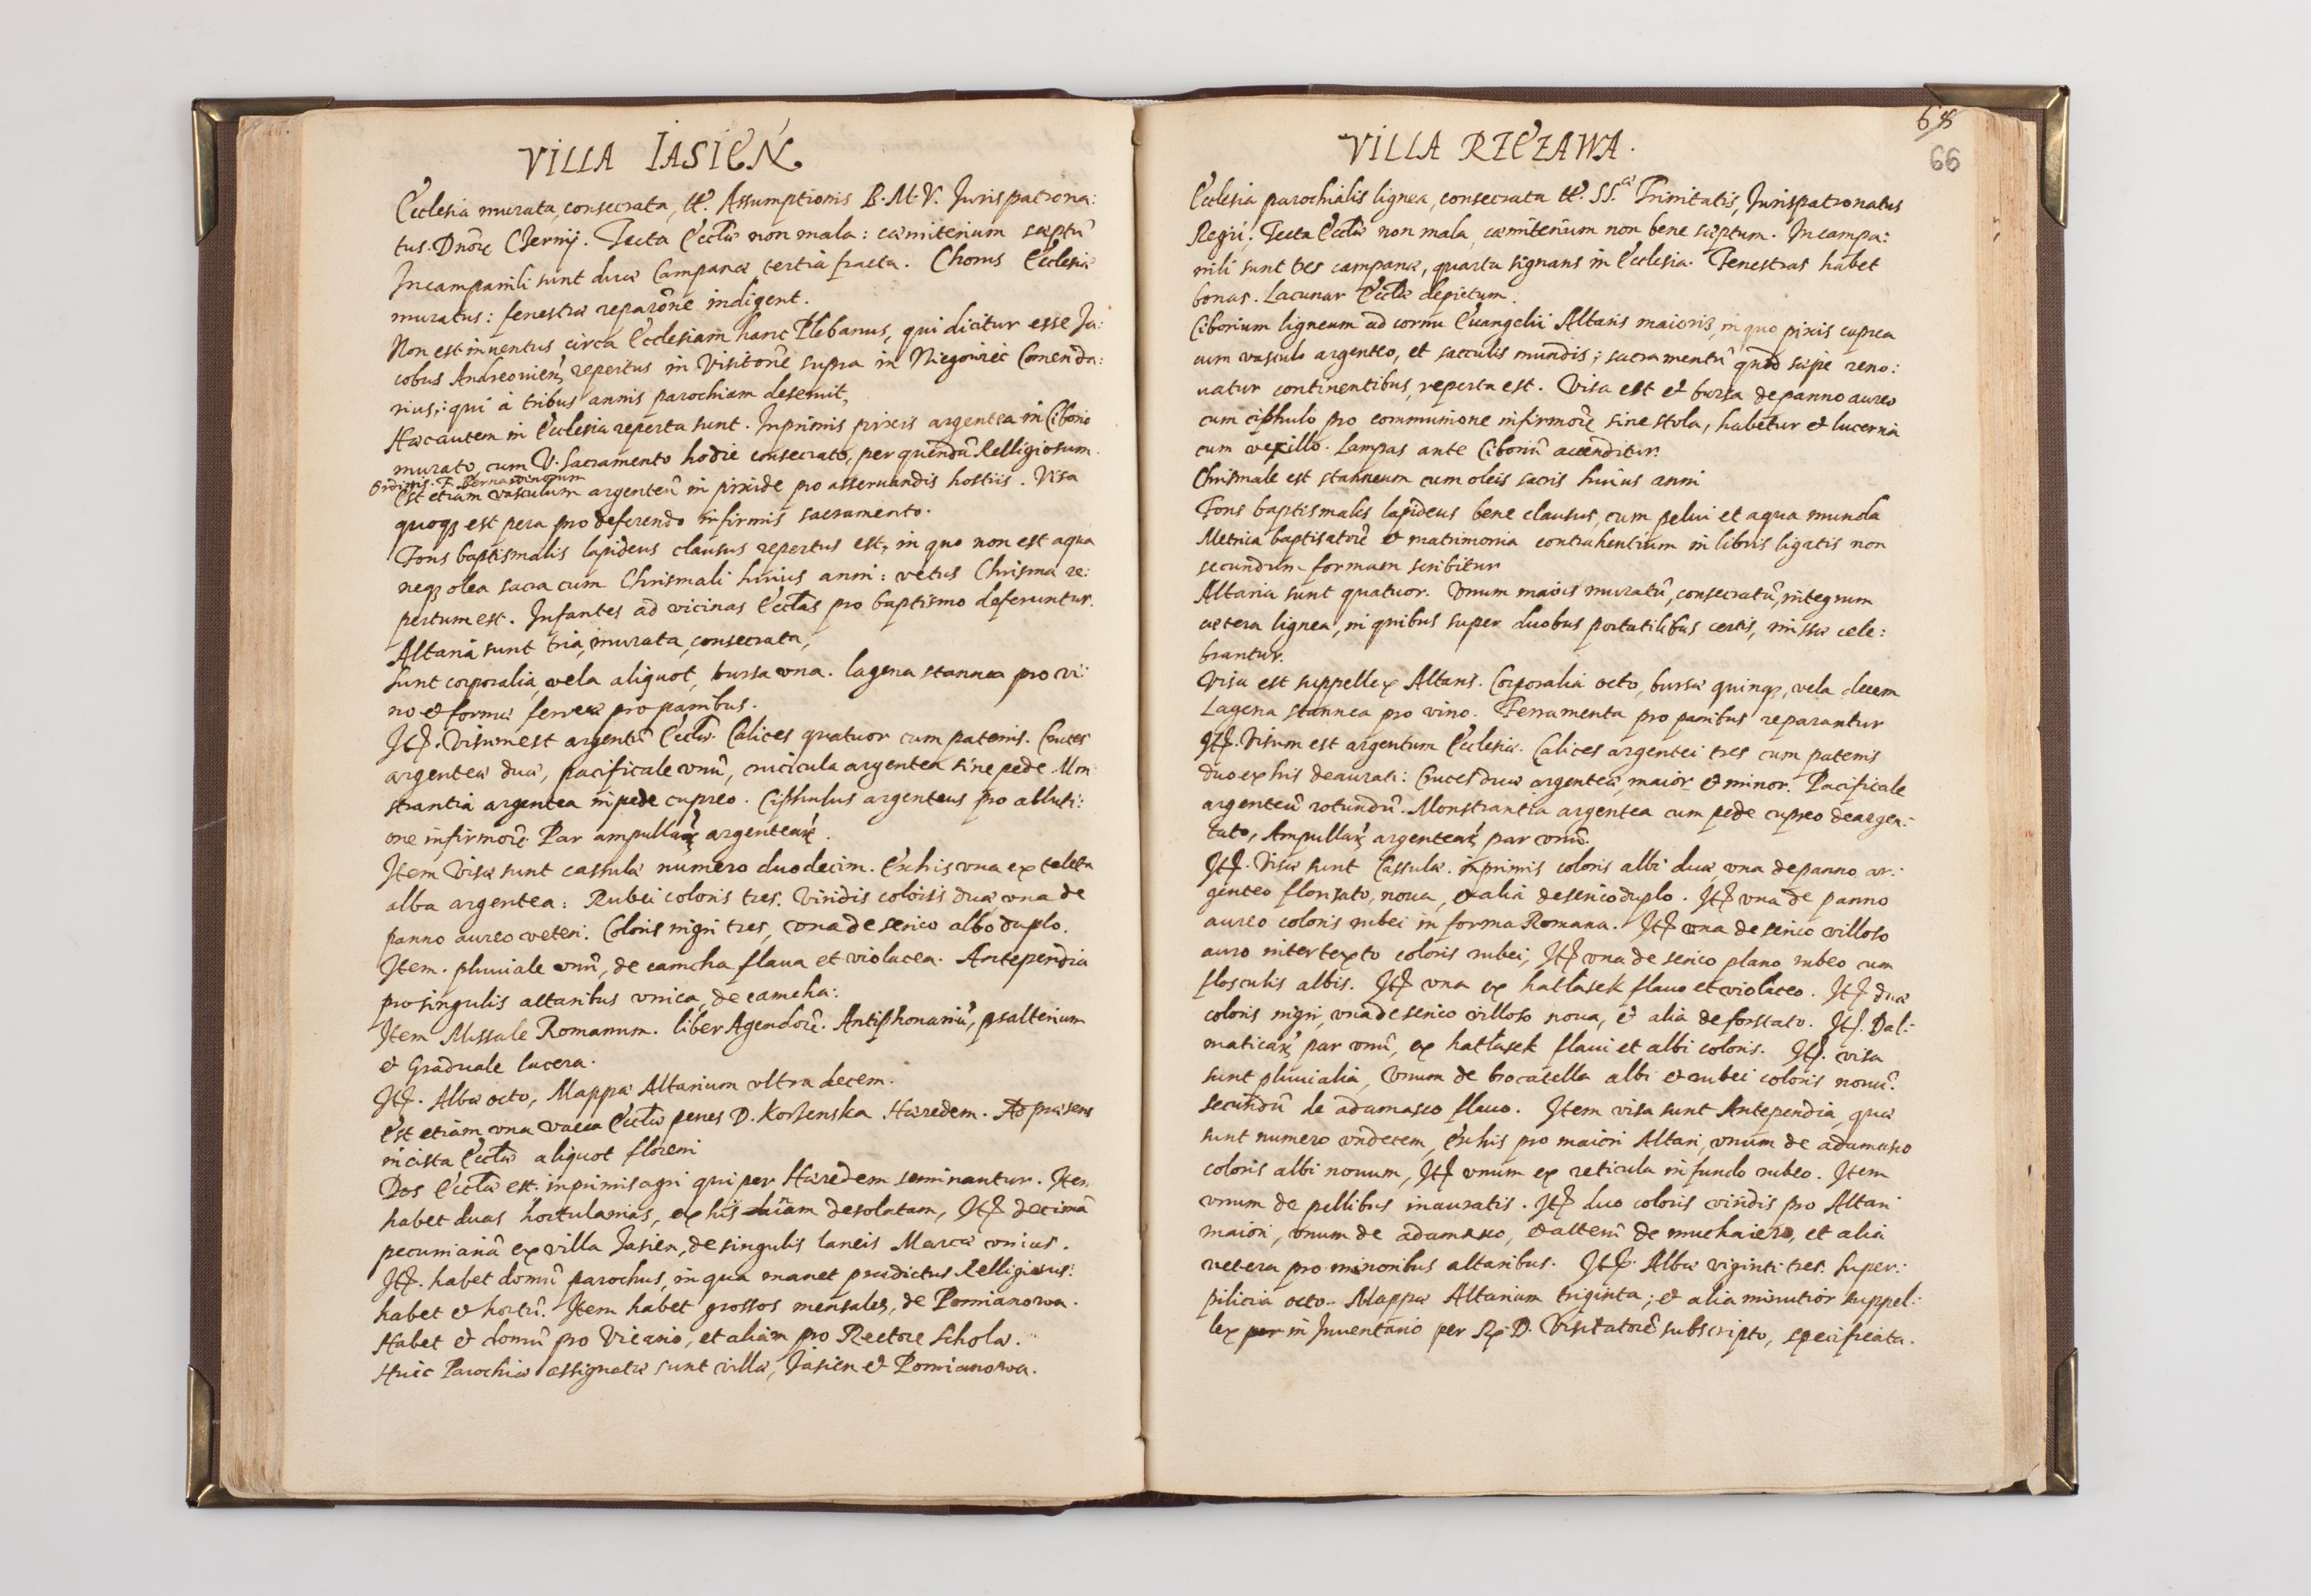 VILLA IASIEŃ
Ecclesia murata, consecrata, tt. Assumptionis B. M. V. Jurispatrona:
tus. Dnorũ Czernij. Tecta Eccliæ non mala: cæmiterium sæptũ
In campanili sunt duæ Campanæ tertia fracta. Chorus Ecclesiæ
muratus: fenestræ reparõne indigent.
Non est inuentus circa Ecclesiam hanc Plebanus, qui dicitur esse Ja:
cobus Andreouien̄ repertus in Visitõne supra in Niegowiec Comenda:
rius; qui à tribus annis parochiam deseruit,
Hæc autem in Ecclesia reperta sunt. Inprimis pixis argentea in Ciborio
murato, cum V. Sacramento hodie consecrato, per quendũ Relligiosum
Ordinis. F. Bernardinorum
Est etiam vasculum argenteũ in pixide pro asseruandis hostiis. Visa
quoqȝ est pera pro deferendo infirmis sacramento.
Fons baptismalis lapideus clausus repertus est, in quo non est aqua
neqȝ olea sacra cum Chrismali huius anni: vetus Chrisma re:
pertum est. Infantes ad vicinas Ecclas pro baptismo deferuntur.
Altaria sunt tria, murata, consecrata,
Sunt corporalia, vela aliquot, bursa vna. lagena stannea pro vi:
no et formæ ferreæ pro panibus.
Itẽ. Visum est argentũ Eccliæ. Calices quatuor cum patenis. Cruces
argenteæ duæ, pacificale vnũ, crucicula argentea sine pede. Mon
strantia argentea in pede cupreo. Ciphulus argenteus pro abluti:
one infirmorũ. Par ampullarũ argentearũ.
Item Visæ sunt cassulæ numero duodecim. Ex his vna ex teletta
alba argentea: Rubei coloris tres. Viridis coloris duæ, vna de
panno aureo veteri. Coloris nigri tres, vna de serico albo duplo.
Item. pluuiale vnũ, de camcha flaua et violacea. Antependia
pro singulis altaribus vnica, de camcha:
Item Missale Romanum. liber Agendorũ. Antiphonariũ, psalterium
et Graduale lacera.
Itẽ. Albæ octo, Mappæ Altarium vltra decem.
Est etiam vna vacca Eccliæ penes D. Korzenska Hæredem. Ad præsens
in cista Eccliæ aliquot floreni
Dos Eccliæ est. inprimis agri qui per Hæredem seminantur. Item
habet duas hortulanias, ex his desolatam, Itẽ decimã
pecuniariã ex villa Jasien, de singulis laneis Marcæ vnius.
Itẽ. habet domũ parochus, in qua manet prædictus Relligiosus:
habet et hortũ. Item habet grossos mensales, de Pomianowa.
Habet et domũ pro Vicario, et aliam pro Rectore Scholæ.
Huic Parochiæ assignatæ sunt villæ, Jasien et Pomianowa.
68
66
VILLA RZEZAWA.
Ecclesia parochialis lignea, consecrata tt. SS.æ Trinitatis, Jurispatronatus
Regii. Tecta Eccliæ non mala, cæmiterium non bene sæptum. In campa:
nili sunt tres campanæ, quarta signans in Ecclesia. Fenestras habet
bonas. Lacunar Eccliæ depictum.
Ciborium ligneum ad cornu Euangelii Altaris maioris, in quo pixis cuprea
cum vasculo argenteo, et sacculis mundis; sacramentũ quod sæpe reno:
uatur continentibus, reperta est. Visa est et bursa de panno aureo
cum ciphulo pro communione infirmorũ sine stola, habetur et lucerna
cum vexillo. Lampas ante Ciboriũ accenditur.
Chrismale est stanneum cum oleis sacris huius anni
Fons baptismalis lapideus bene clausus, cum pelui et aqua munda
Metrica baptisatorũ et matrimonia contrahentium in libris ligatis non
secundum formam scribitur
Altaria sunt quatuor. Vnum maius muratũ, consecratũ, integrum
cætera lignea, in quibus super duobus portatilibus certis, missæ cele:
brantur.
Visa est suppellex Altaris. Corporalia octo, bursæ quinqȝ, vela decem
Lagena stannea pro vino. Ferramenta pro panibus reparantur
Itẽ. Visum est argentum Ecclesiæ. Calices argentei tres cum patenis
duo ex his deaurati: Cruces duæ argenteæ, maior et minor. Pacificale
argenteũ rotundũ. Monstrantia argentea cum pede cupreo deargen:
tato, Ampullarũ argentearũ par vnũ.
Itẽ. Visæ sunt Cassulæ. inprimis coloris albi duæ, vna de panno ar:
genteo florisato, noua, et alia de serico duplo. Itẽ vna de panno
aureo coloris rubei in forma Romana. Itẽ vna de serico villoso
auro intertexto coloris rubei, Itẽ vna de serico plano rubeo cum
flosculis albis. Itẽ vna ex hatłasek flauo et violaceo. Itẽ duæ
coloris nigri, vna de serico villoso noua, et alia de forstato. Itẽ. Dal:
maticarũ par vnũ, ex hatłasek flaui et albi coloris. Itẽ. visa
sunt pluuialia, Vnum de brocatella albi et rubei coloris nouũ.
secundũ de adamasco flauo. Item visa sunt Antependia, quæ
sunt numero vndecem, Ex his pro maiori Altari, vnum de adamasco
coloris albi nouum, Itẽ vnum ex reticula in fundo rubeo. Item
vnum de pellibus inauratis. Itẽ duo coloris viridis pro Altari
maiori, vnum de adamasco, et alterũ de muchaiero, et alia
vetera pro minoribus altaribus. Itẽ. Albæ viginti tres. Super:
pilicia octo. Mappæ Altarium triginta; et alia minutior suppel:
lex in Inuentario per R. D. Visitatorẽ subscripto, specificata.